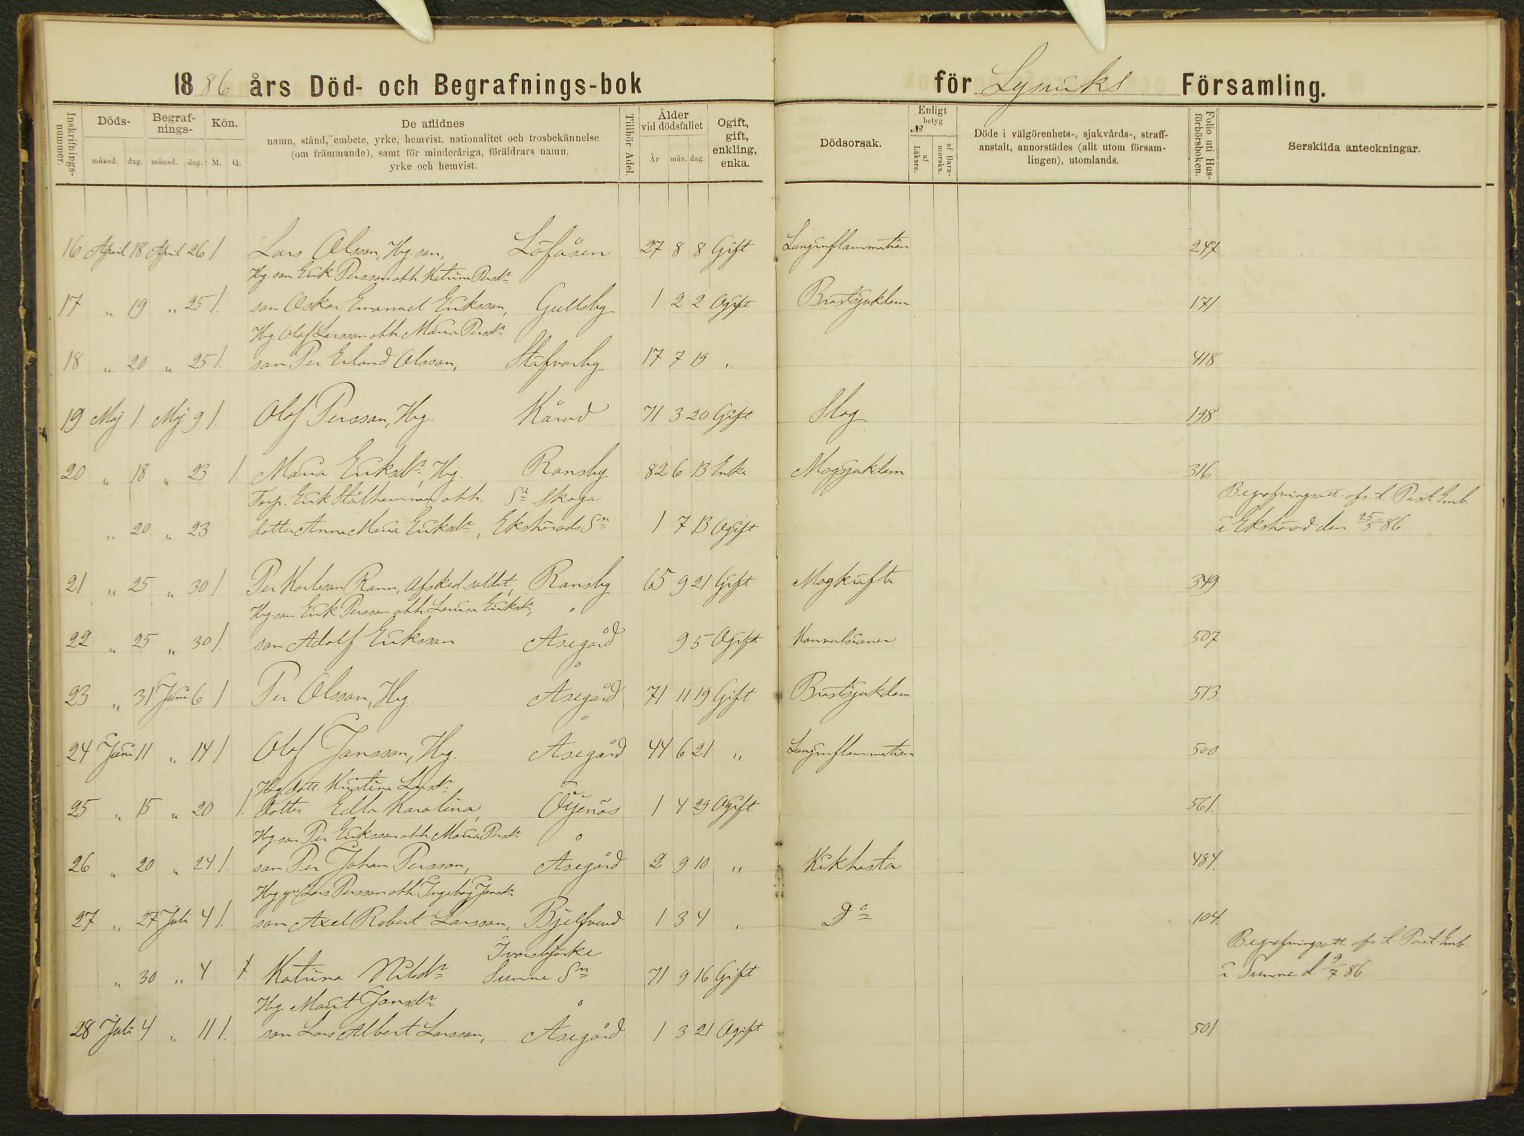 1886 års Död- och Begrafnings-bok för Lysviks Församling.
Inskrifnings-nummer.
Döds-
månad. dag.
Begraf-nings-
månad. dag.
Kön.
M. Q.
De aflidnes
namn, stånd, embete, yrke, hemvist, nationalitet och trosbekännelse
(om främmande), samt för minderåriga, föräldrars namn,
yrke och hemvist.
Tillhör Adel.
Ålder
vid dödsfallet
År mån. dag.
Ogift,
gift,
enkling,
enka.
Dödsorsak.
Enligt
betyg
№
af Läkare.
af Barn-morska.
Döde i välgörenhets-, sjukvårds-, straff-
anstalt, annorstädes (allt utom försam-
lingen), utomlands.
Folio uti Hus-förhörsboken.
Serskilda anteckningar.
16 April 18 April 26 1 Lars Olsson, Hg. son, Löfåsen 27 8 8 Gift Lunginflammation 247
Hg son Erik Persson och Katrina Persdr
17 " 19 " 25 1. son Oskar Emanuel Eriksson, Gullsby 1 2 2 Ogift Bröstsjukdom 171
Hg. Olof Larsson och Maria Persdr
18 " 20 " 25 1. son Per Erland Olsson, 17 7 19 " 418
19 Maj 1 Maj 9 1. Olof Persson, Hg. 71 3 20 Gift Slag 198
20 " 18 " 23 1. Maria Eriksdr, Hg. Ransby 82 6 13 Enka Magsjukdom 316
Torp. Erik och Sa Skoga
" 20 " 23 dotter Anna Maria Eriksdr, Ekshärads Sn 1 7 13 Ogift
Begrafningsatt. afs. t. Past. Emb.
i Ekshärad den 25/5 86.
21 " 25 " 30 1 Per Karlsson Rann, Afsked. soldat, Ransby 65 9 21 Gift Magkräfta 349
Hg son Erik Persson och Lovisa Eriksdr,
22 " 25 " 30 1. son Adolf Eriksson Åsegård 9 5 Ogift Konvulsioner 507
23 " 31 Juni 6 1 Per Olsson, Hg. Åsegård 71 11 19 Gift Bröstsjukdom 513
24 Juni 11 " 14 1. Olof Jansson, Hg. Åsegård 44 6 21 " Lunginflammation 500
Hg. dott. Kristina Larsdr
25 " 15 " 20 1. dotter Edla Karolina, Öjenäs 1 4 29 Ogift 561
Hg son Per Eriksson och Maria Persdr
26 " 20 " 24 1. son Per Johan Persson, Åsegård 2 9 10 " Kikhosta 484.
Hg Lars Persson och Ingeborg Jansdr
27 " 27 Juli 4 1. son Axel Robert Larsson, Bjelfvend 1 3 4 " Do 104
Ivarsbjörke
" 30 " 4 1. Katrina Nilsdr Sunne Sn 71 9 16 Gift
Begrafningsatt. afs. t. Past. Emb.
i Sunne d. 9/7 86.
Hg Marit Jansdr
28 Juli 4 " 11 1. son Lars Albert Larsson, Åsegård 1 3 21 Ogift 501